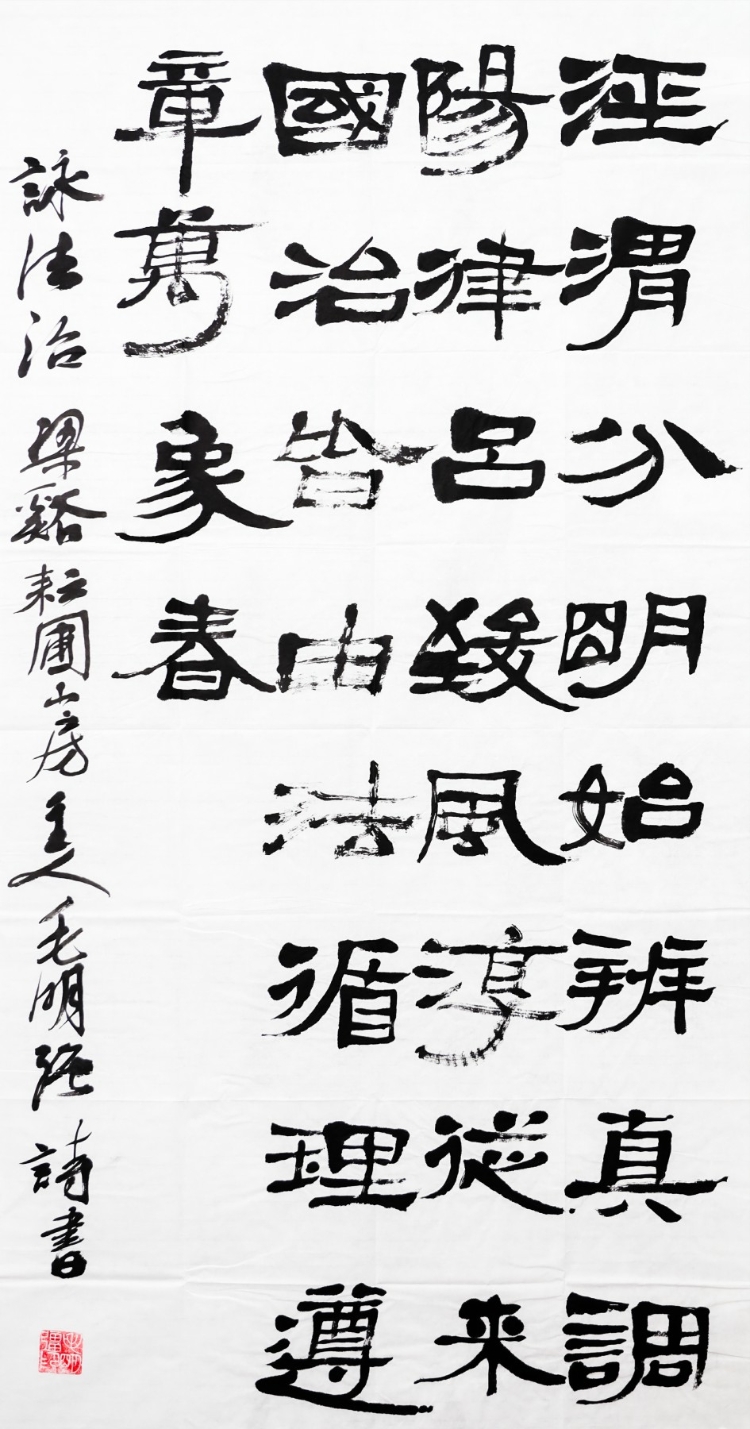 涇渭分明始辨真調
陽律呂致風淳從來
國治皆由法循理遵
章萬象春
詠法治 梁谿耘圃山房主人毛明强詩書